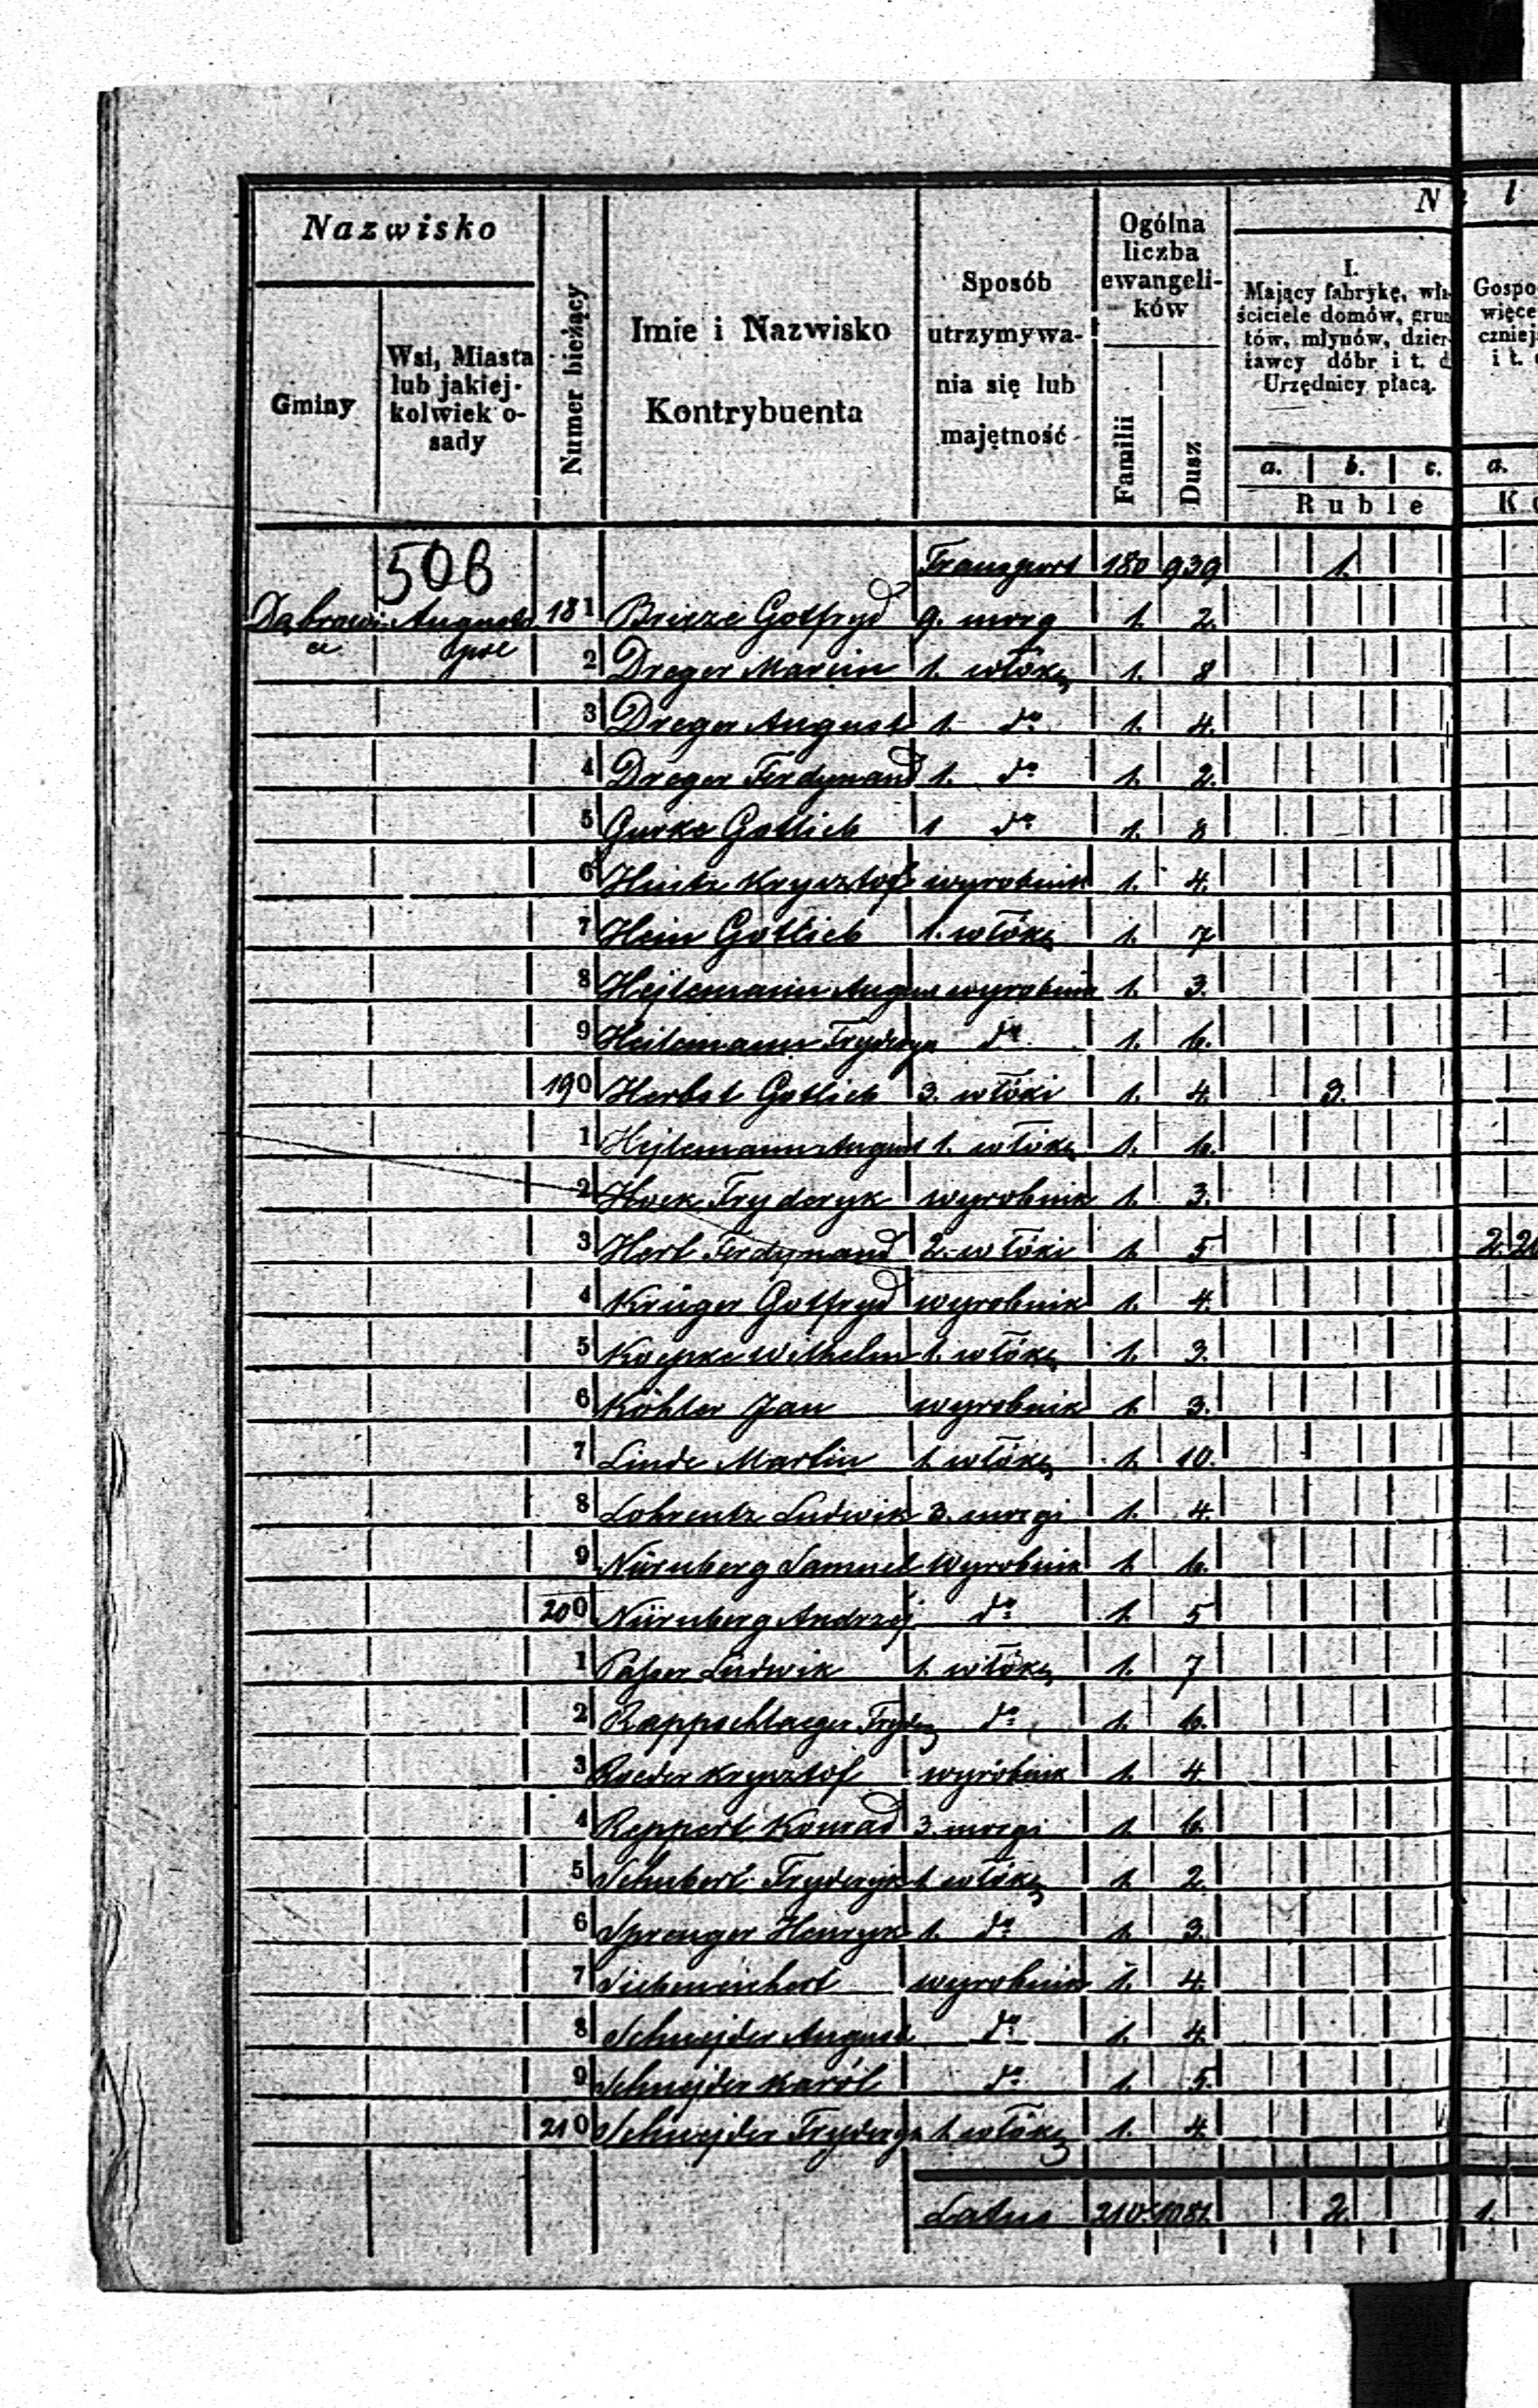 Nazwisko
Gminy
Wsi, Miasta
lub jakiej-
kolwiek o-
sady
Numer bieżący
Imie i Nazwisko
Kontrybuenta
Sposób
utrzymywa-
nia się lub
majętność
Ogólna
liczba
ewangeli-
ków
Familii
Dusz
N
l
I.
Mający fabrykę, wła-
ściciele domów, grun-
tów, młynów, dzier-
żawcy dóbr i t. d.
Urzędnicy płacą.
a. b. c.
Ruble
Gospo
więce
czniej
i t.
a.
K
506
Transport 180 939 1.
181 Gotfryd 9. morg 1. 2.
2 Dreger Marcin 1. włókę 1. 8
3 Dreger August 1. do 1. 4.
4 Dreger Ferdynand 1. do 1. 2.
5 Gurke Gotlieb 1 do 1. 8
6 Hintz Krysztof wyrobnik 1. 4.
7 Hein Gotlieb 1. włókę 1. 7
8 Hejtemann August wyrobnik 1. 3.
9 Heitemann Fryderyk do 1. 6.
190 Herbst Gotlieb 3. włóki 1. 4. 3.
1 Hejtemann August 1. włókę 1. 6.
2 Hoek Fryderyk wyrobnik 1. 3.
3 Hert Ferdynand 2. włóki 1. 5 2. 2
4 Krüger Gotfryd wyrobnik 1. 4.
5 Koepke Wilhelm 1. włókę 1. 3.
6 Köhler Jan wyrobnik 1. 3.
7 Linde Martin 1. włókę 1. 10.
8 Lohrentz Ludwik 3. morgi 1. 4.
9 Nürnberg Samuel Wyrobnik 1. 6.
200 Nürnberg Andrzej do 1. 5
1 Ludwik 1. włókę 1. 7
2 Rappschlaeger Fryder do 1. 6.
3 Roeder Krysztof wyróbnik 1. 4
4 Reppert Konrad 3. morgi 1. 6.
5 Schubert Fryderyk 1. włókę 1. 2.
6 Sprenger Henryk 1. do 1. 3.
7 wyrobnik 1. 4.
8 Schnejder August do 1. 4.
9 Schnejder Karól do 1. 5.
210 Schnejder Fryderyk 1. włókę 1. 4
Latus 210. 1081. 2. 1.